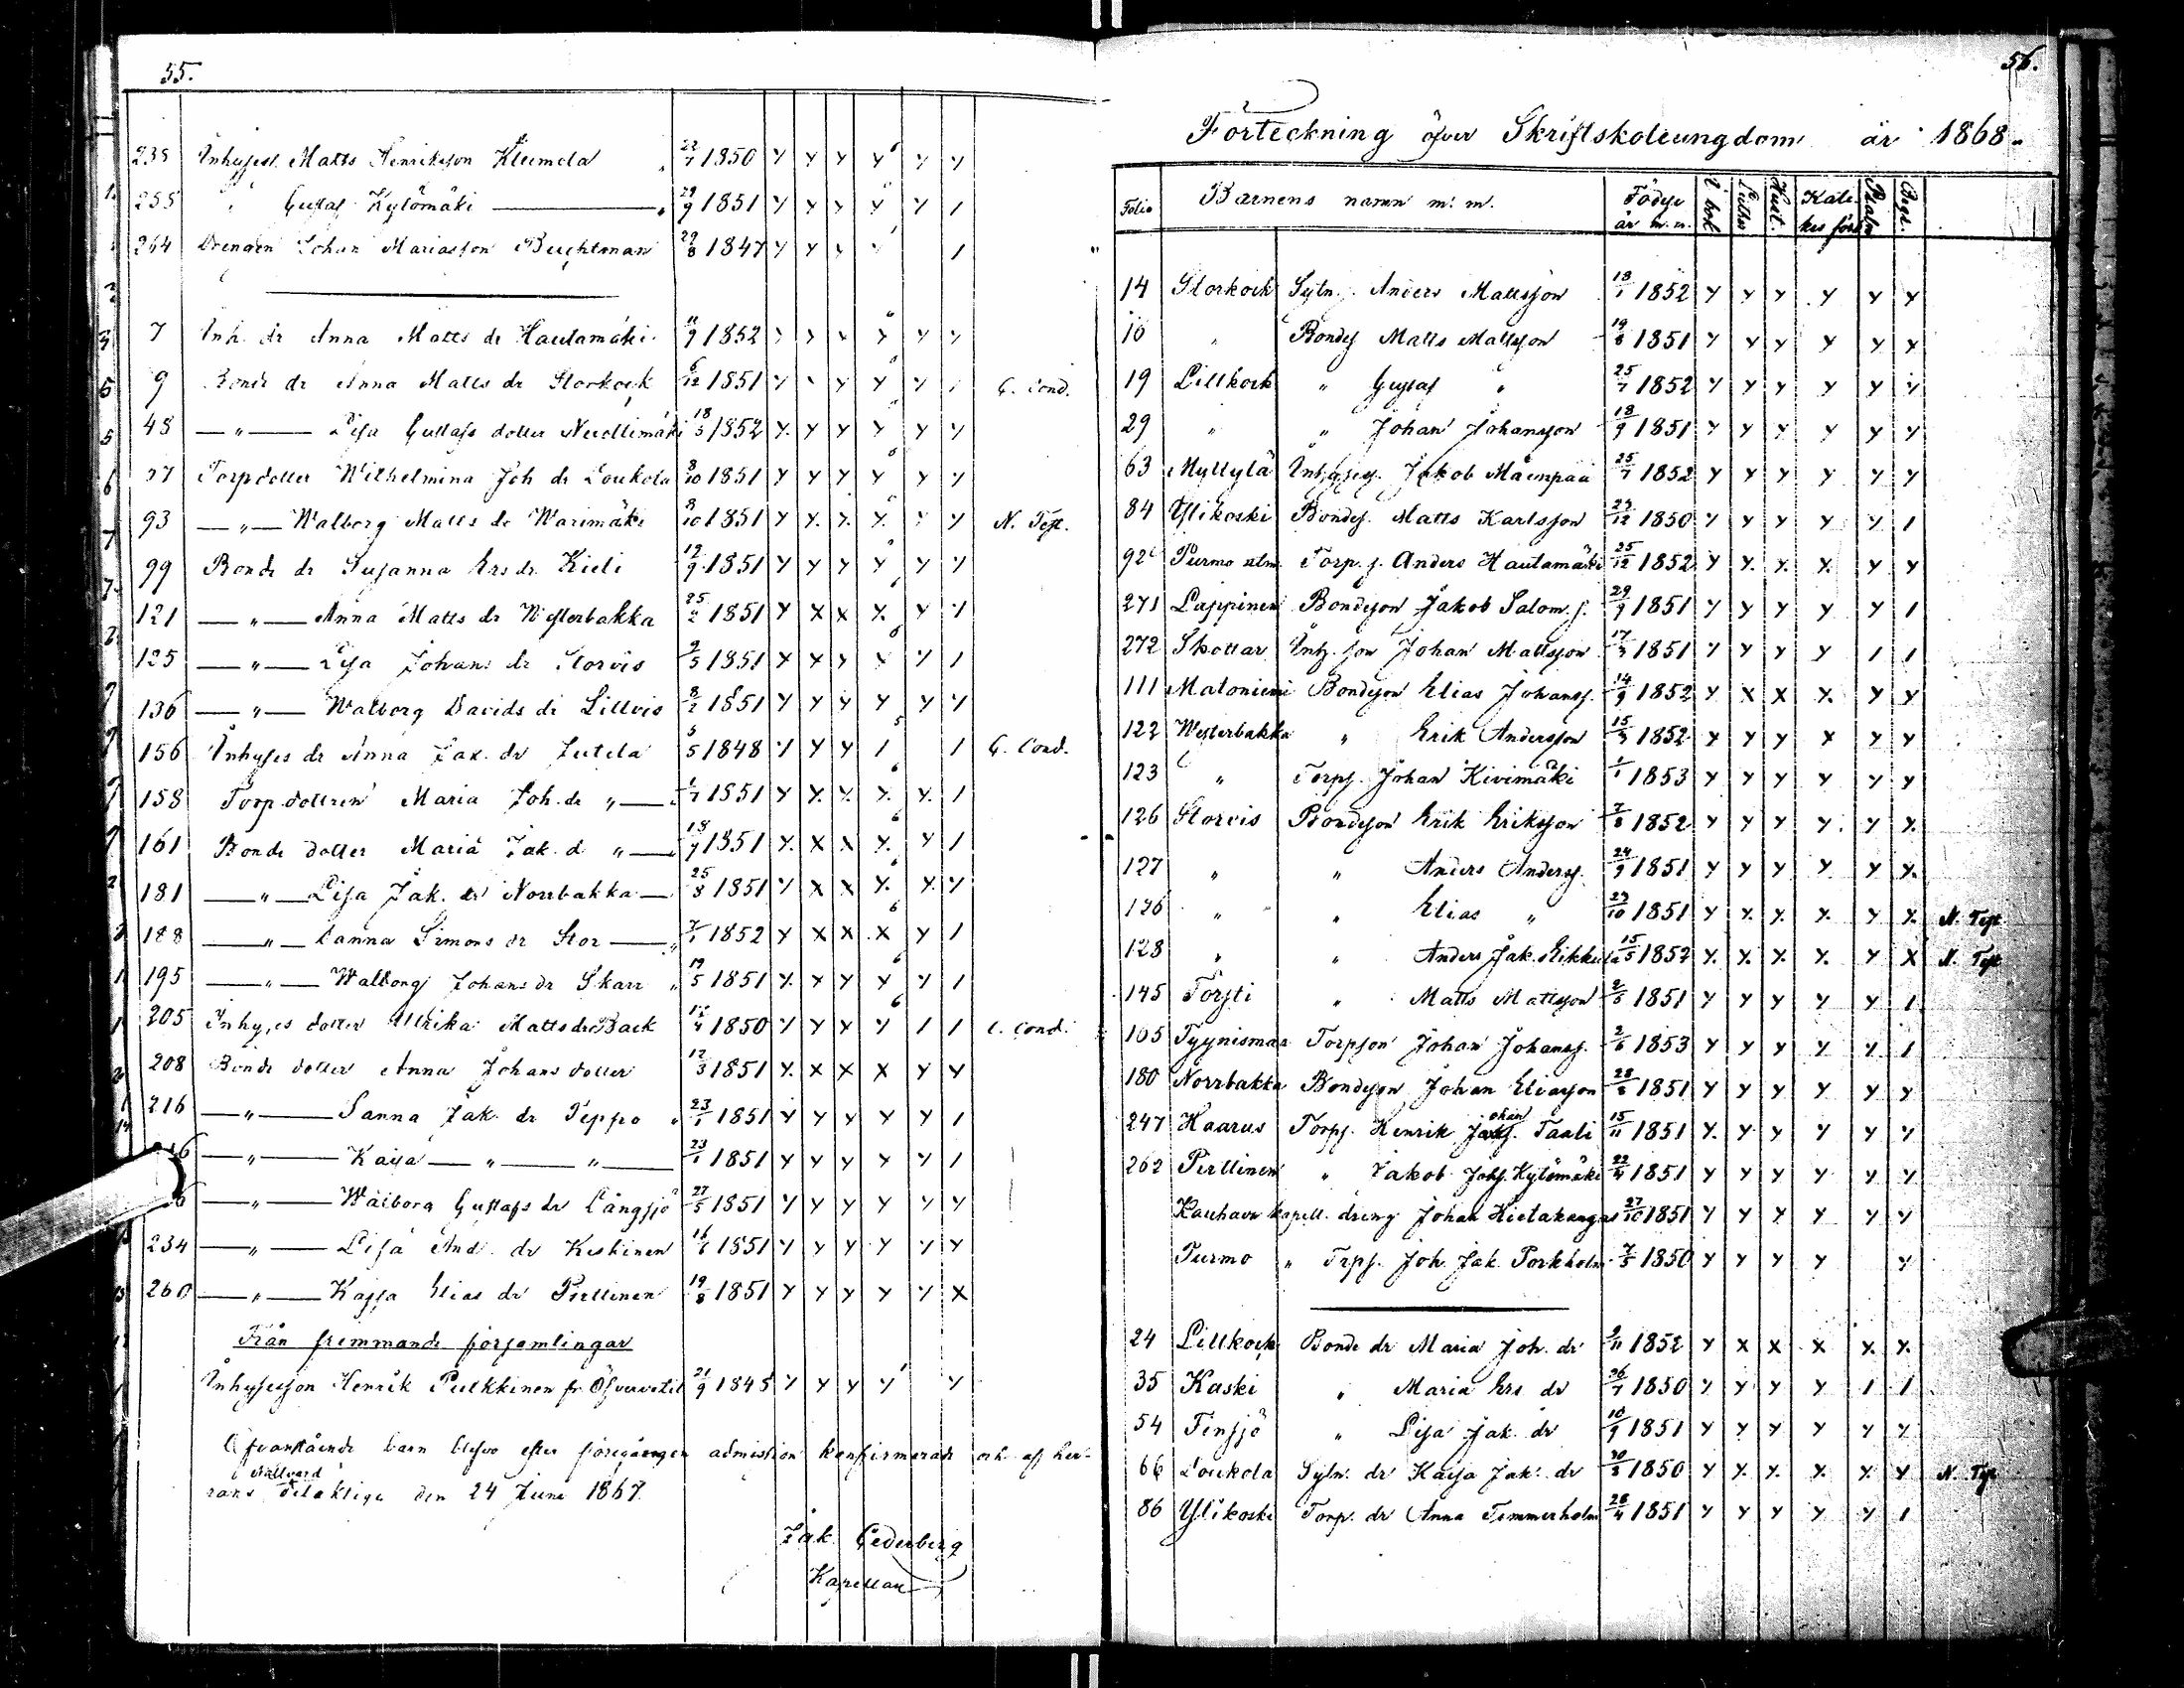 55.
235 Inhyses. Matts Henriksson Kleemola 22/7 1850 y y y y 6 y y
255 " Gustaf Kytömäki 29/9 1851 y y y y y /
264 Drengen Johan Mariasson Buchtman 29/8 1847 y y y /
7 Inh. dr Anna Matts dr Hautamäki 11/9 1852 y y y y 6 y y
9 Bonde dr Anna Matts dr Storkock 6/12 1851 y y y y 6 y / C. Cond.
48 — " — Lisa Gustafs dotter 18/5 1852 y y y y y y
77 Torpdotter Wilhelmina Joh dr Loukola 8/10 1851 y y y y 6 y y
93 — " — Walborg Matts dr Warimäki 8/10 1851 y y y y y y N. Test.
99 Bonde dr Susanna Ers dr Kieli 12/9 1851 y y y y y y
121 — " — Anna Matts dr Westerbakka 25/2 1851 y x x y y y
125 — " — Lisa Johans dr Storvis 9/5 1851 y y y y y /
136 — " — Walborg Davids dr Lillvis 8/2 1851 y y y y y y
156 Inhyses dr Anna Jak. dr Jutila 5/5 1848 y y y / 5 / C. Cond.
158 Torpdottren Maria Joh. dr " — 1/7 1851 y y y y 6 y /
161 Bonde dotter Maria Jak. d " — 18/7 1851 y x x y 6 y /
181 — " — Lisa Jak. dr Norrbakka — 25/8 1851 y x x y 6 y y
188 — " — Sanna Simons dr Stor — " 7/1 1852 y x x x 6 y /
195 — " — Walborg Johans dr Skarr " 19/5 1851 y x y y 6 y /
205 Inhyses dotter Ulrika Matts dr Back 12/4 1850 y y x y 6 / / C. Cond.
208 Bonde dotter Anna Johans dotter 12/3 1851 y x x x y y
216 — " — Sanna Jak. dr Peppo " 23/1 1851 y y y y y /
— " — Kajsa — " — " — 23/1 1851 y y y y y /
— " — Walborg Gustafs dr Långsjö 27/5 1851 y y y y y y
234 — " — Lisa And. dr Keskinen 16/6 1851 y y y y y y
260 — " — Kajsa Elias dr Pirttinen 19/8 1851 y y y y y x
Från fremmande församlingar
Inhysesson Henrik Pulkkinen fr. Öfvervetil 21/9 1845 y y y y y
Ofvanstående barn blefvo efter föregången admission konfirmerade och af Her-
rans Nattvard delaktige den 24 Juni 1867.
Jak. Cederberg
Kapellan
56.
Förteckning öfver Skriftskoleungdom år 1868.
Folio Barnens namn m. m. Födse år m. m. i bok Luth. Hust. Kate- kes förkl. Psalm Begr.
14 Storkock Sytn. s. Anders Mattsson 18/1 1852 y y y y y y
10 " Bondes. Matts Mattsson 19/8 1851 y y y y y y
19 Lillkock " Gustaf " 25/7 1852 y y y y y y
29 " " Johan Johansson 18/9 1851 y y y y y y
63 Myllylä Inhyses. Jakob Mäenpää 25/7 1852 y y y y y y
84 Ylikoski Bondes. Matts Karlsson 27/12 1850 y y y y y /
92 Purmo Torp. s. Anders Hautamäki 25/12 1852 y y y y y y
271 Lappinen Bondeson Jakob Salom. s. 29/9 1851 y y y y y /
272 Skottar Inh. son Johan Mattsson 17/3 1851 y y y y / /
111 Matoniemi Bondeson Elias Johanss. 14/9 1852 y x x x y y
122 Westerbakka " Erik Andersson 15/3 1852 y y y x y y
123 " Torps. Johan Kivimäki 1/1 1853 y y y y y y
126 Storvis Bondeson Erik Eriksson 7/8 1852 y y y y y y
127 " " Anders Anderss. 24/9 1851 y y y y y y
126 " " Elias " 23/10 1851 y y y y y y N. Test
128 " " Anders Jak. 15/5 1852 y y y y y x N. Test
145 Torsti " Matts Mattsson 2/5 1851 y y y y y /
165 Tyynismaa Torpson Johan Johanss. 2/6 1853 y y y y y /
180 Norrbakka Bondeson Johan Eliasson 28/6 1851 y y y y y y
247 Haarus Torps. Henrik Johans. Taali 15/11 1851 y y y y y y
262 Pirttinen " Jakob Johs. Kytömäki 22/4 1851 y y y y y y
Kauhava kapell. dreng Johan Hietakangas 27/10 1851 y y y y y y
Purmo " Trps. Joh. Jak. Porkholm 7/5 1850 y y y y y
24 Lillkock Bonde dr Maria Joh. dr 9/11 1852 y x x x y y
35 Kaski " Maria Ers dr 26/7 1850 y y y y / /
54 Finsjö " Lisa Jak. dr 10/9 1851 y y y y y y
66 Loukola Sytn. dr Kajsa Jak. dr 30/3 1850 y y y y y y N. Test
86 Ylikoski Torp. dr Anna Timmerholm 28/4 1851 y y y y y /